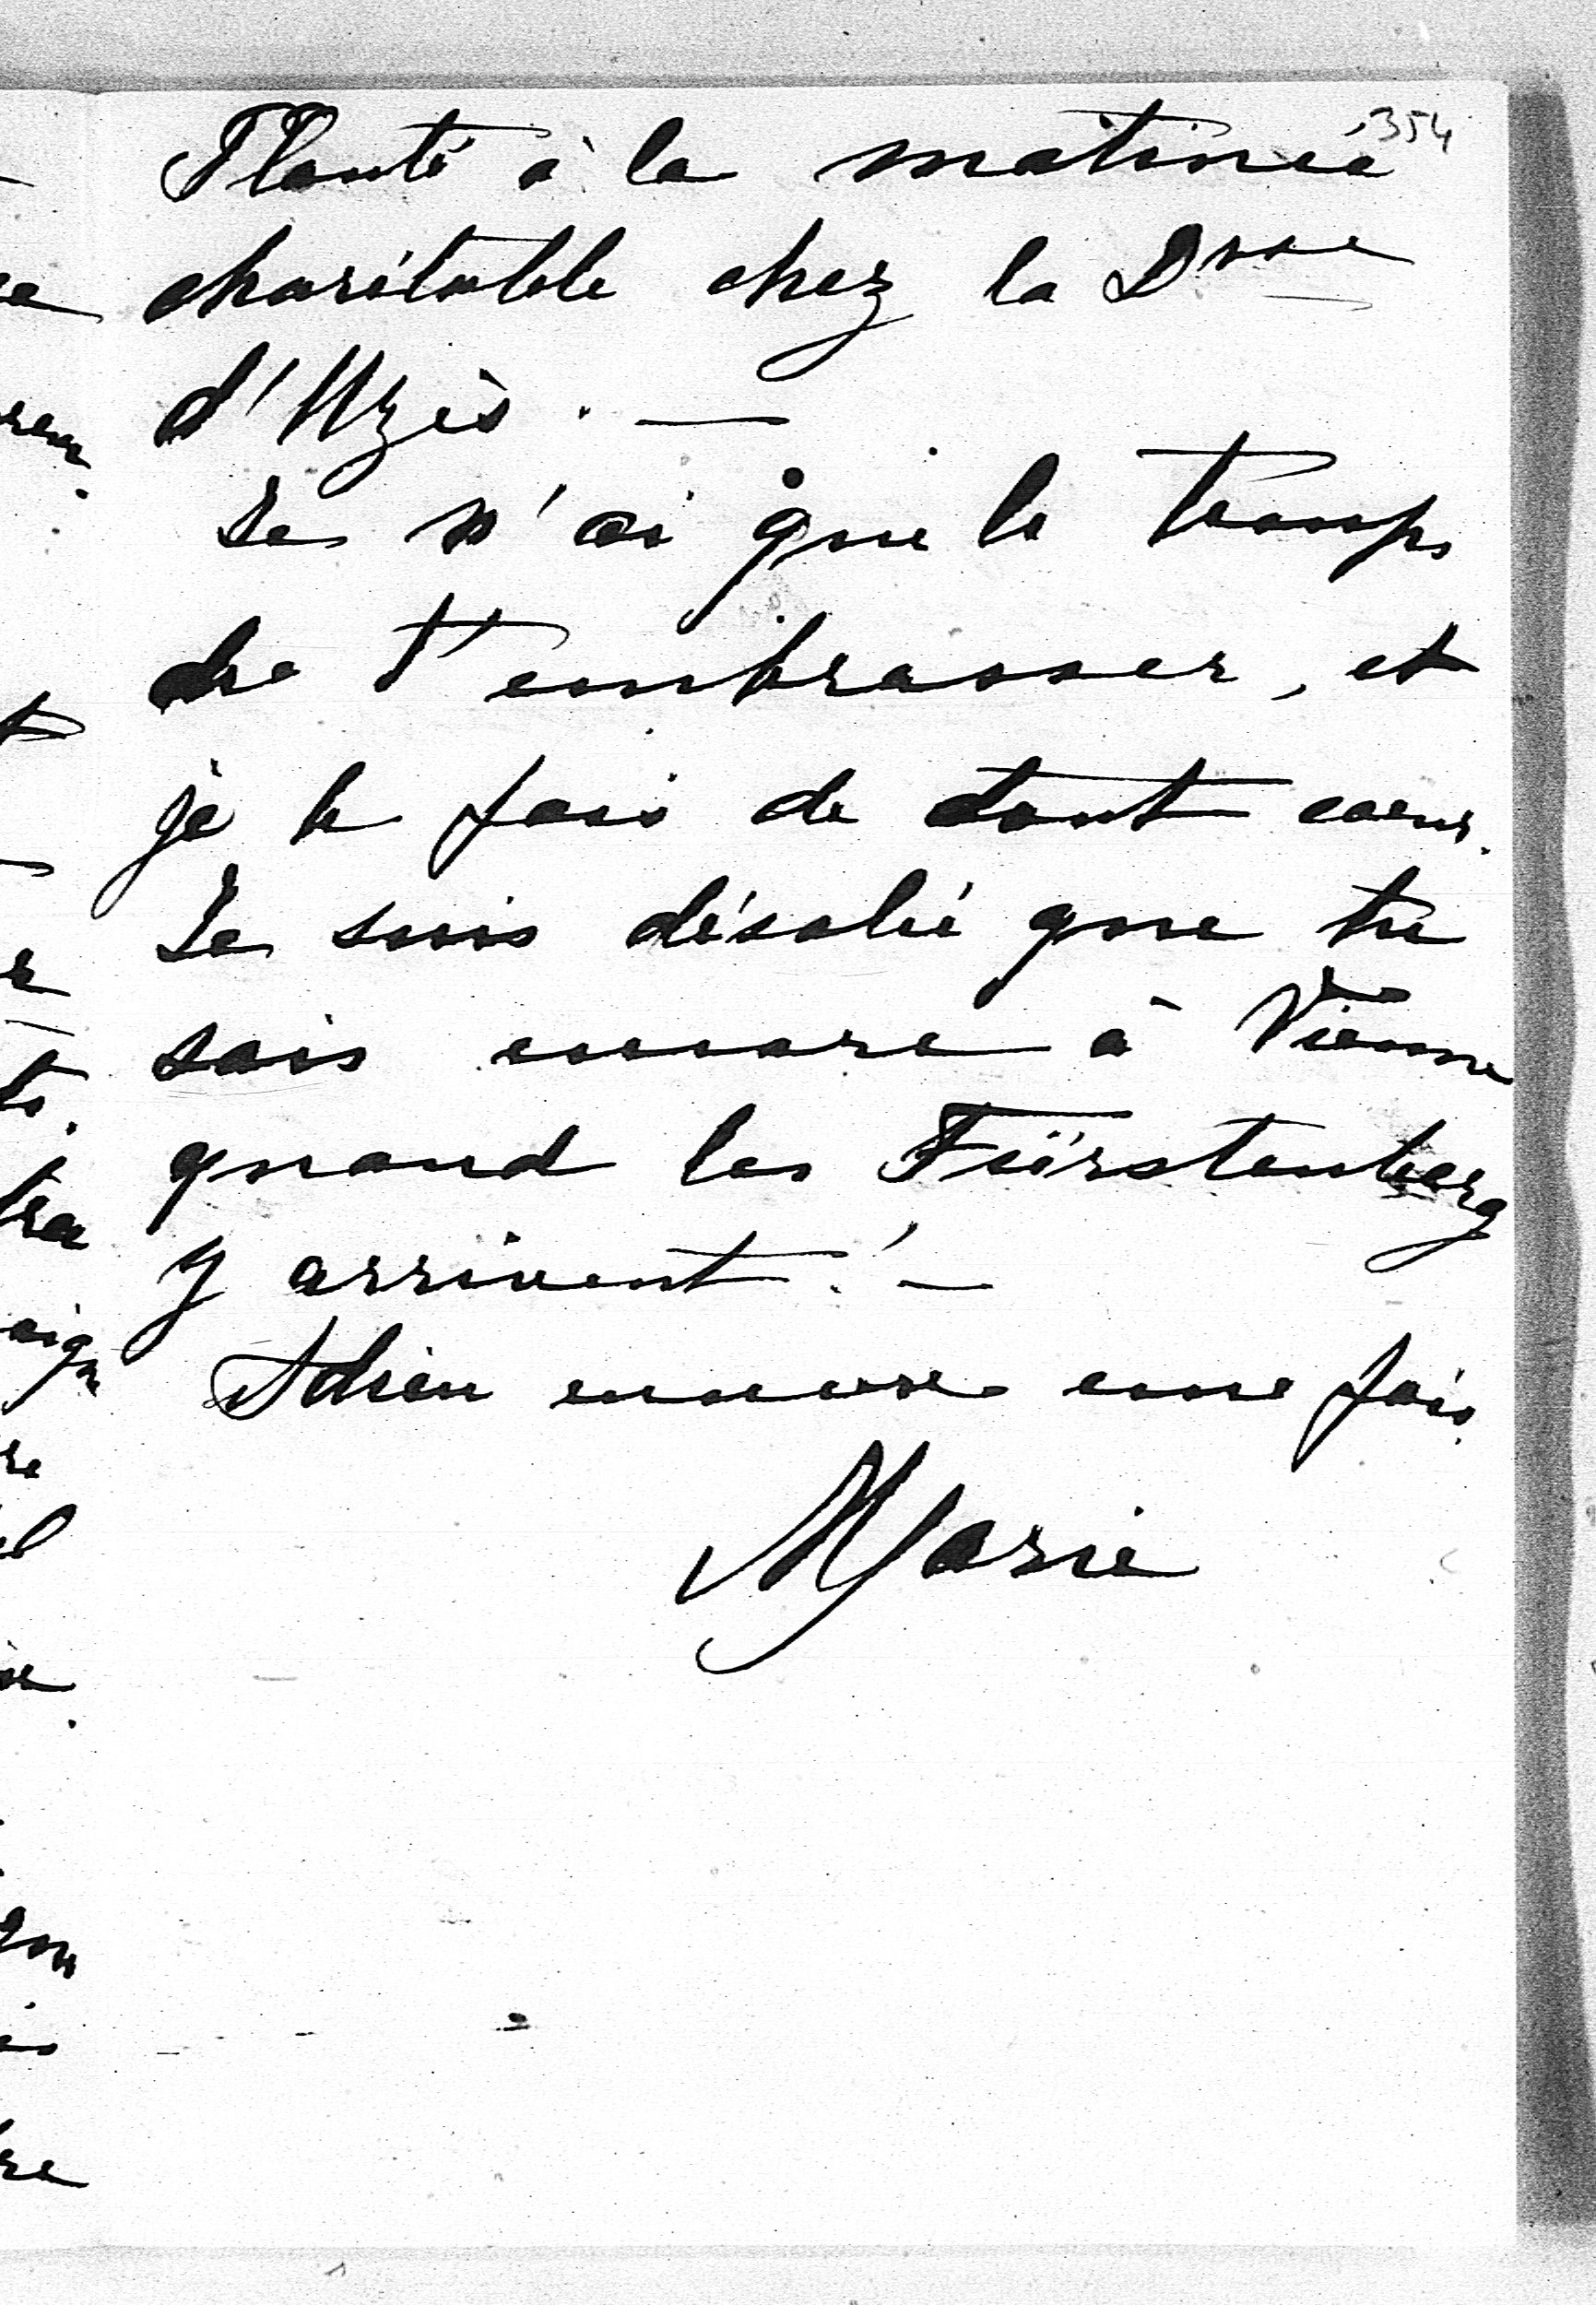 354
Planté à la matinée
charitable chez la Dsse
d'Uzès. —
Je n'ai que le temps
de t'embrasser, et
je le fais de tout cœur.
Je suis désolée que tu
sois encore à Vienne
quand les Fürstenberg
y arrivent! —
Adieu encore une fois.
Marie